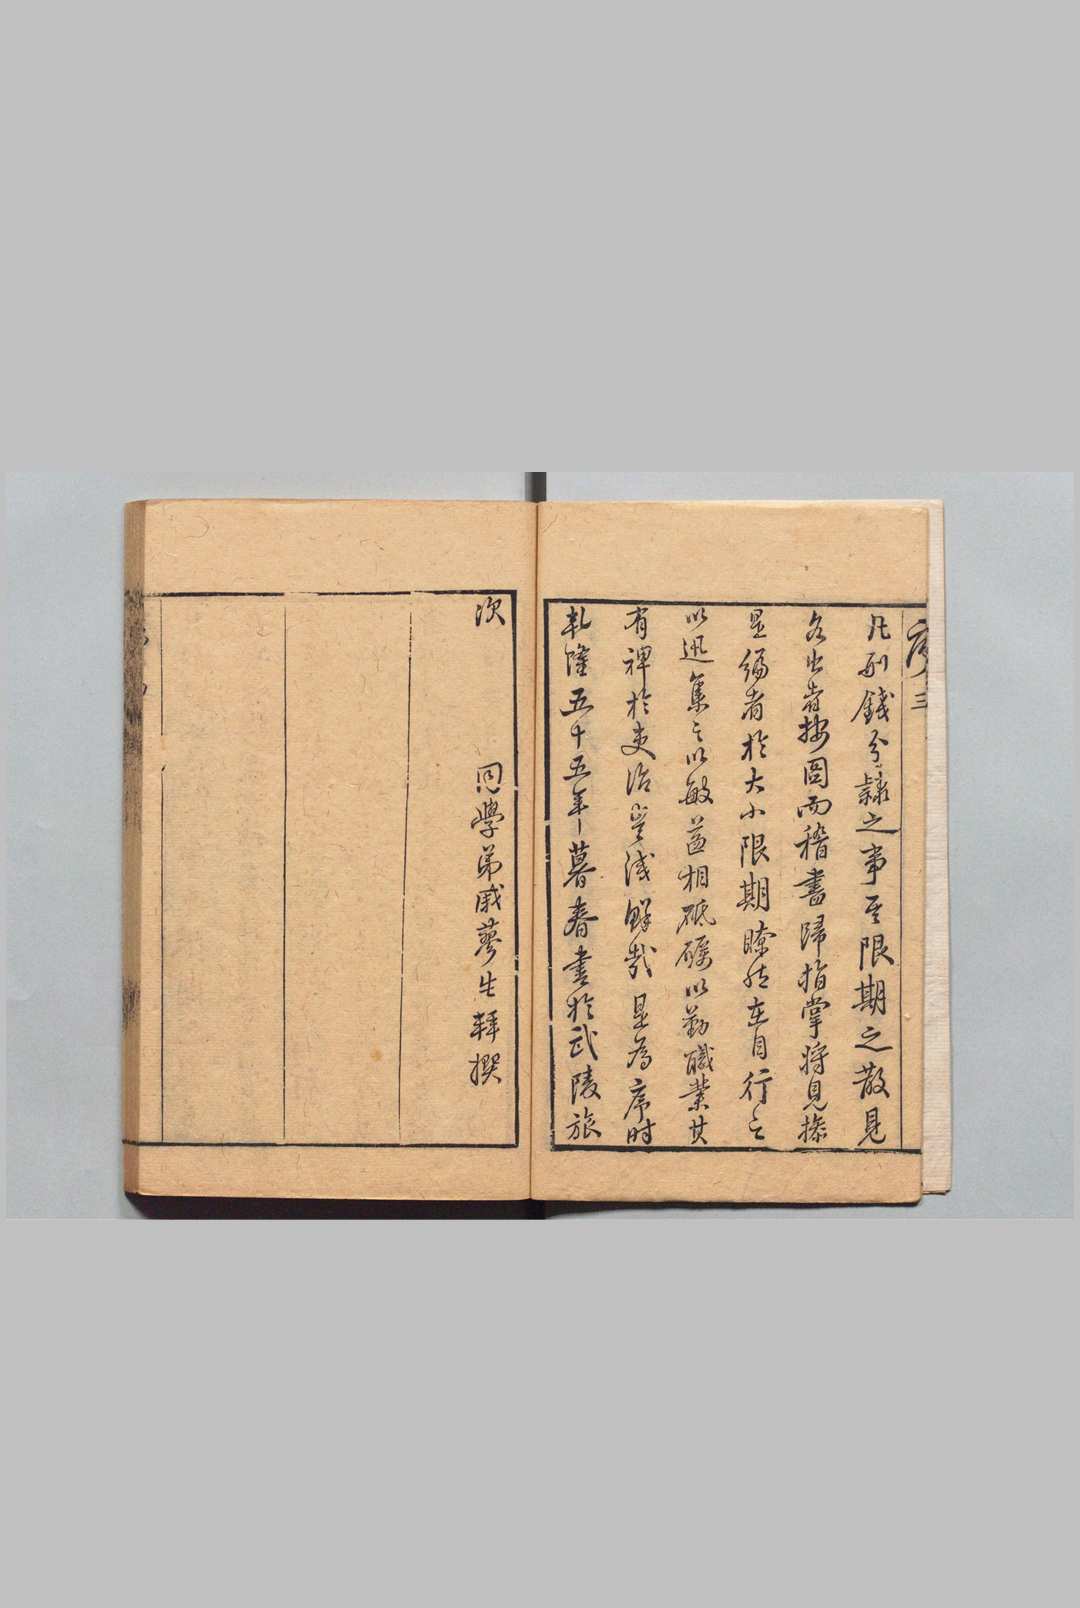 序 三
凡刑錢分隸之事至限期之散見
各出者按圖而稽盡歸指掌將見操
是編者於大小限期瞭然在目行之
以迅集之以敏益相砥礪以勤職業其
有裨於吏治豈淺鮮哉是為序時
乾隆五十五年暮春書於武陵旅
次
同學弟戚蓼生拜撰